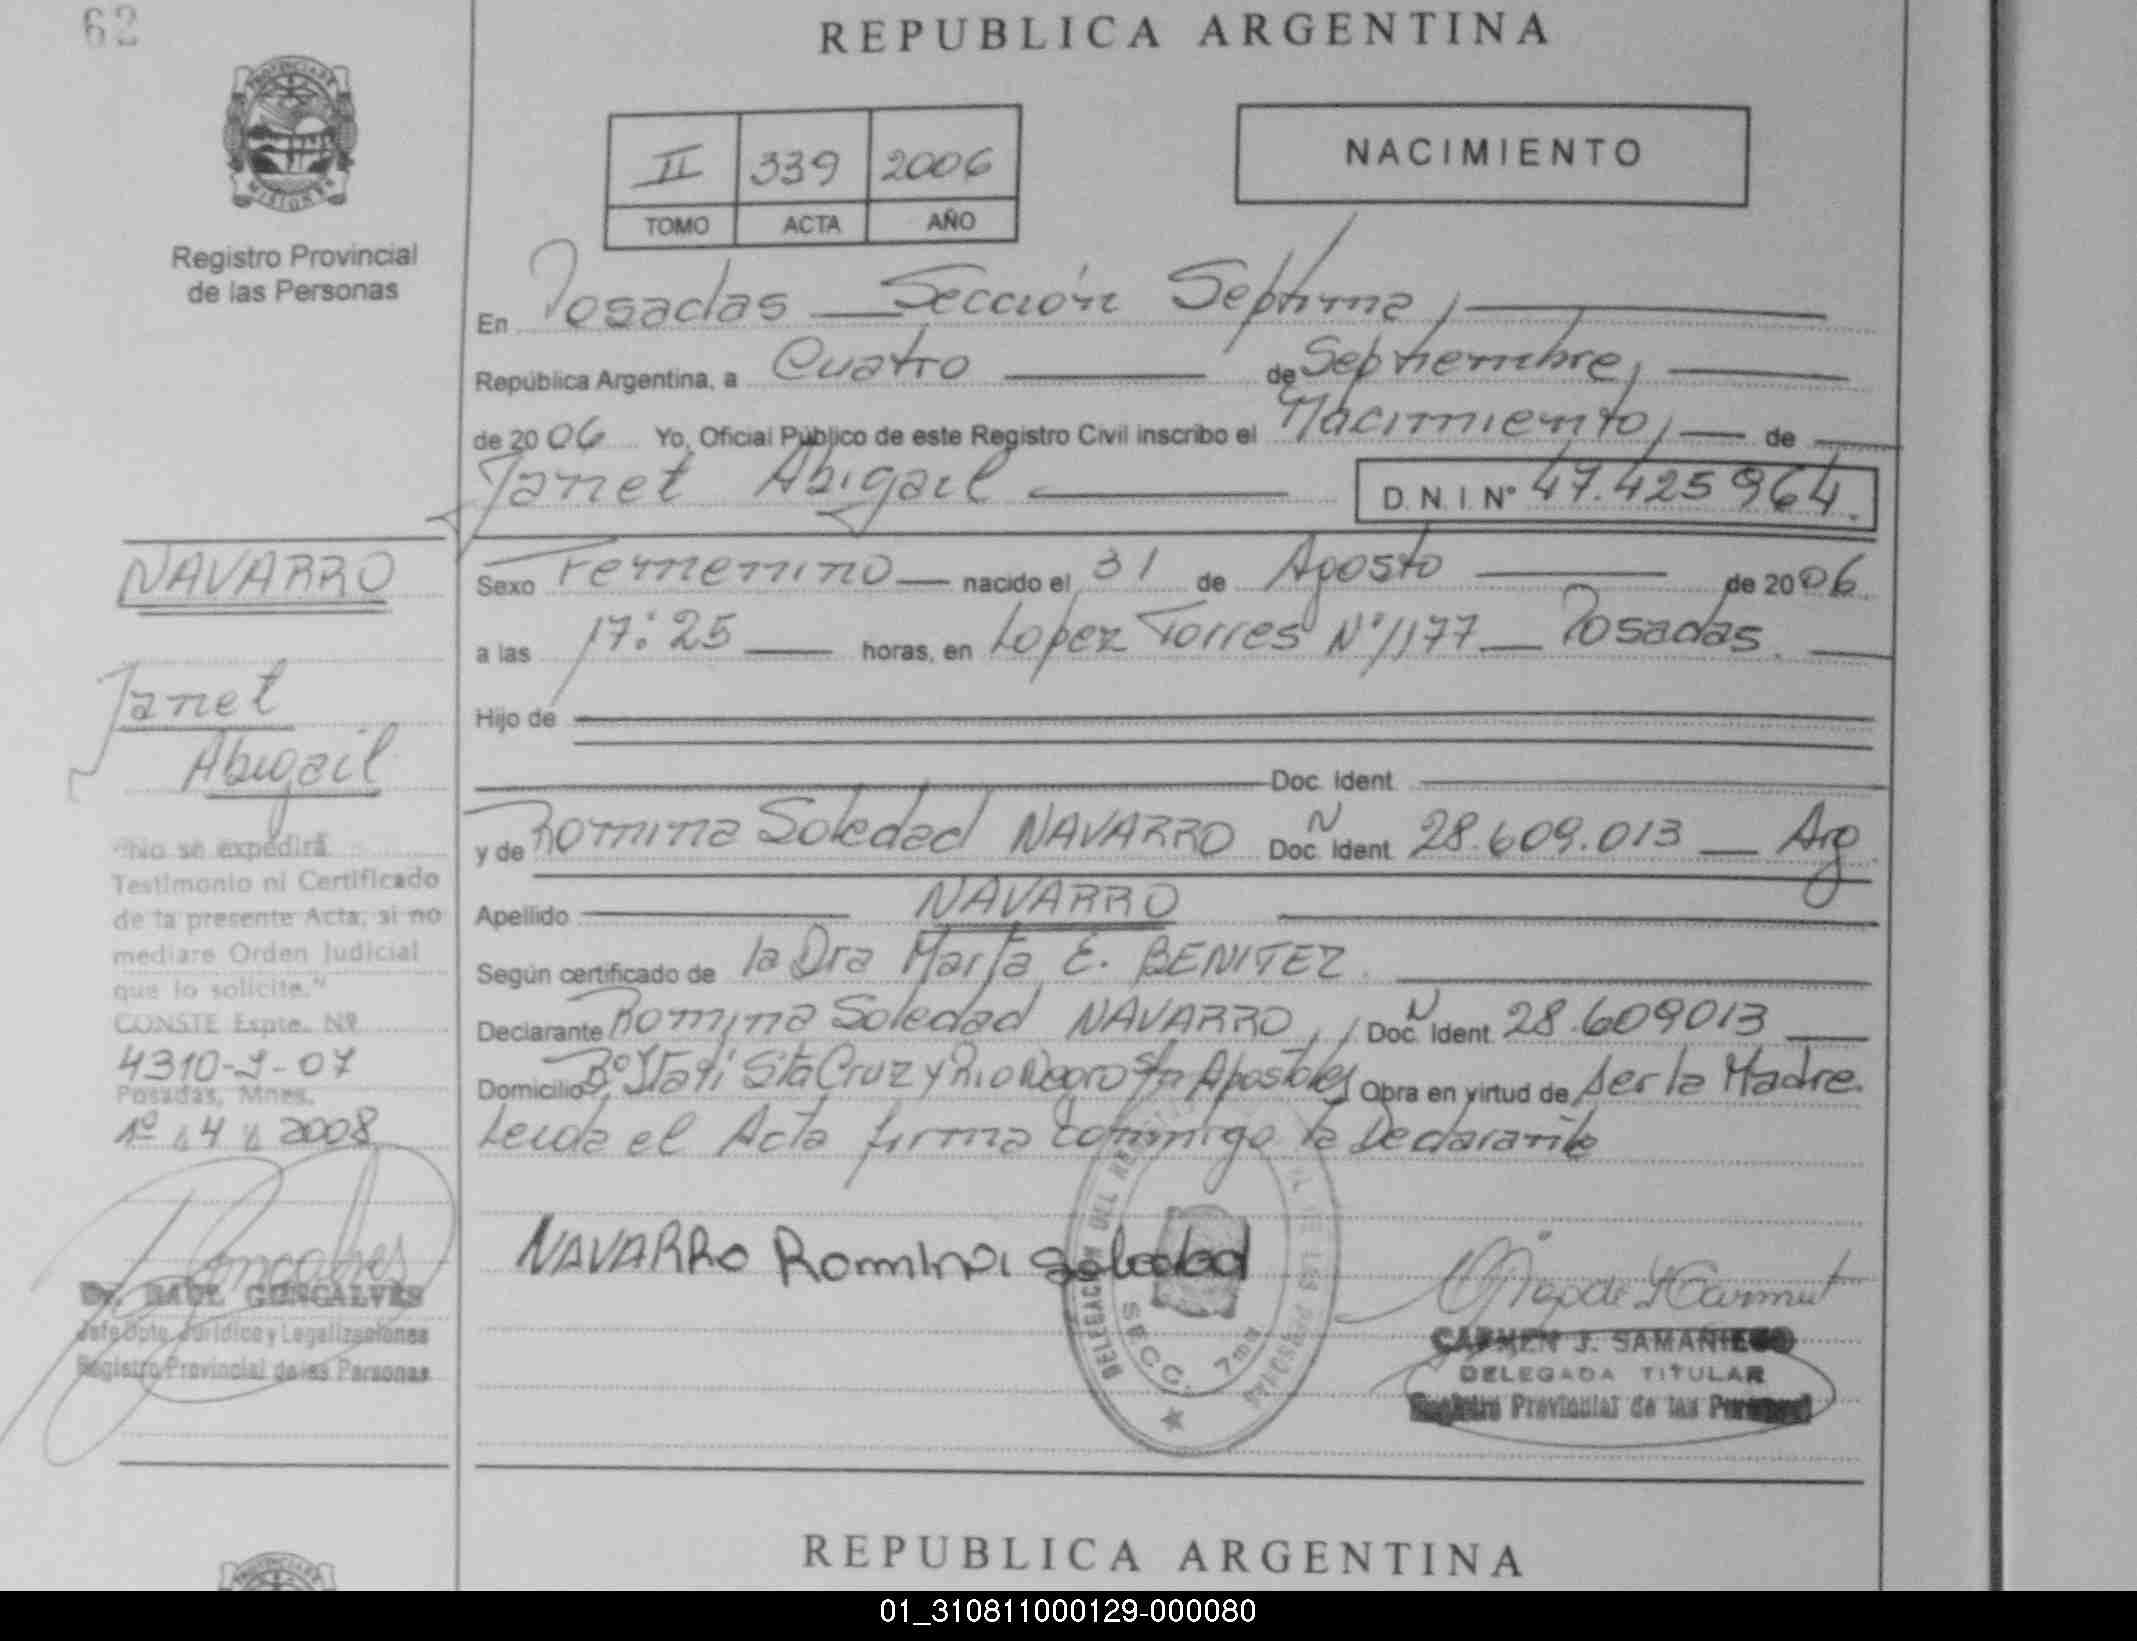 62
REPUBLICA ARGENTINA
PROVINCIA DE
MISIONES
Registro Provincial
de las Personas
II 339 2006
TOMO ACTA AÑO
NACIMIENTO
En Posadas Sección Septima,
República Argentina, a Cuatro de Septiembre,
de 2006 Yo, Oficial Público de este Registro Civil inscribo el Nacimiento, de
Janet Abigail D.N.I. N° 47.425964.
Sexo Femenino nacido el 31 de Agosto de 2006.
a las 17:25 horas, en Lopez Torres N° 1177 Posadas.
Hijo de
Doc. Ident.
y de Romina Soledad NAVARRO Doc. N Ident. 28.609.013 Arg
Apellido NAVARRO
Según certificado de la Dra Marta E. BENITEZ.
Declarante Romina Soledad NAVARRO, Doc. N Ident. 28.609013
Domicilio B° Sta Cruz y Rio Negro Apostoles Obra en virtud de ser la Madre.
Leida el Acta firma conmigo la Declarante
NAVARRO Romina Soledad
DELEGACION DEL
SECC. 7ma
CARMEN J. SAMANIEGO
DELEGADA TITULAR
Registro Provincial de las Personas
NAVARRO
Janet
Abigail
"No se expedirá
Testimonio ni Certificado
de la presente Acta, si no
mediare Orden Judicial
que lo solicite."
CONSTE Espte. Nº
4310-J-07
Posadas, Mnes.
1º 4 2008
Dr. RAUL GONCALVES
Jefe Dpto. Jurídico y Legalizaciones
Registro Provincial de las Personas
REPUBLICA ARGENTINA
01_310811000129-000080